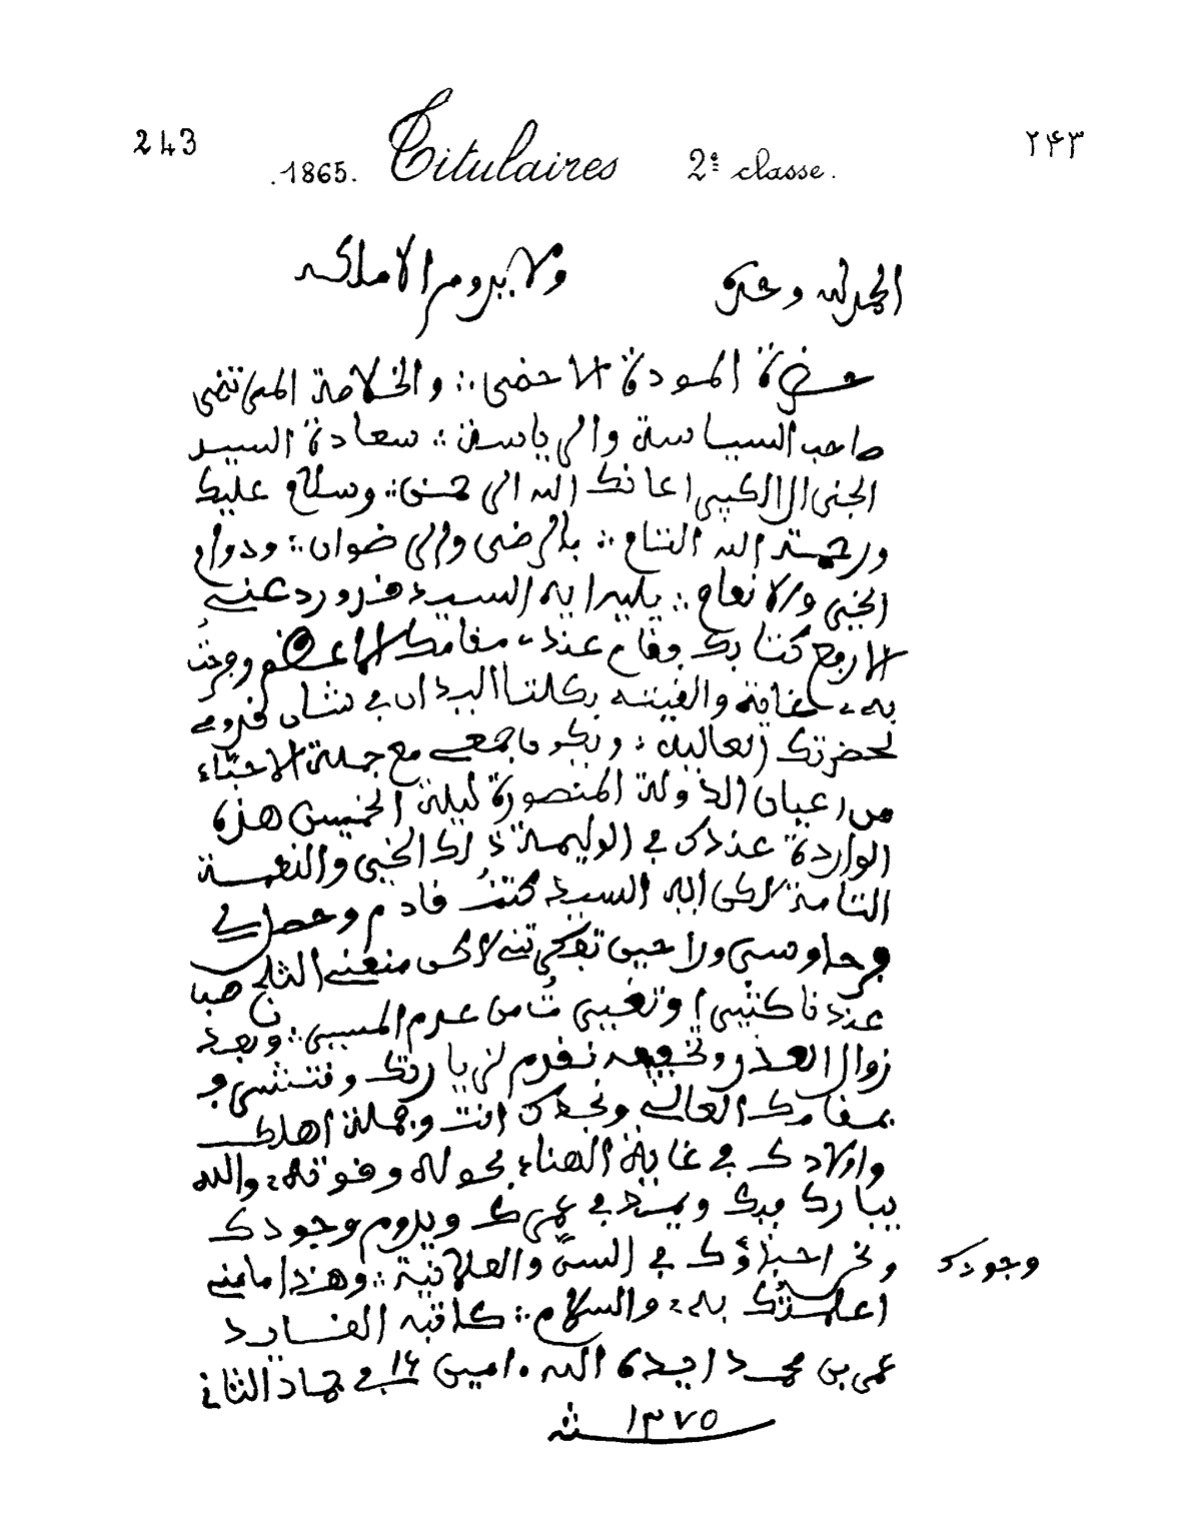 243
1865. Titulaires 2e classe.
۲۴۳
الحمد لله وحده ولا يدوم الا ملكه
حضرة المودة الاحضى والخلاصة
صاحب السياسة والرياسة سعادة السيد
الجنرال الكبير اعانك الله الى حسنى وسلام عليك
ورحمة الله التام بالرضى والرضوان ودوام
الخير والانعام يليه ايه السيد قد ورد عني
الارفع كتابك وقام عند مقامك الاعظم وفرحت
به غاية والفيته بكلتا اليدان في شان قدومي
لحضرتك العالية ونكون اجمعي مع جملة الاحباء
من اعيان الدولة المنصورة ليلة الخميس هذه
الواردة عندك في الوليمة ذلك الخير والنعمة
التامة لاكن ايه السيد كنت قادم وحصل لي
تفكرتني لاكن منعني الثلج صبا
عندنا كثيرا وتغيرت من عدم المسير وبعد
زوال العذر وتخفيفه نقدم لزيارتك و
بمقامك العالي ونجدك انت وجملة اهلك
واولادك في غاية الهناء بحوله وقوته والله
يبارك فيك ويمد في عمرك ويدوم وجودك
ونحن احباؤك في السر والعلانية وهذا ما مني
وجودك
اعلمتك به والسلام كاتبه القايد
عمر بن محمد ايده الله امين ١٤ في جماد الثاني
١٢٧٥